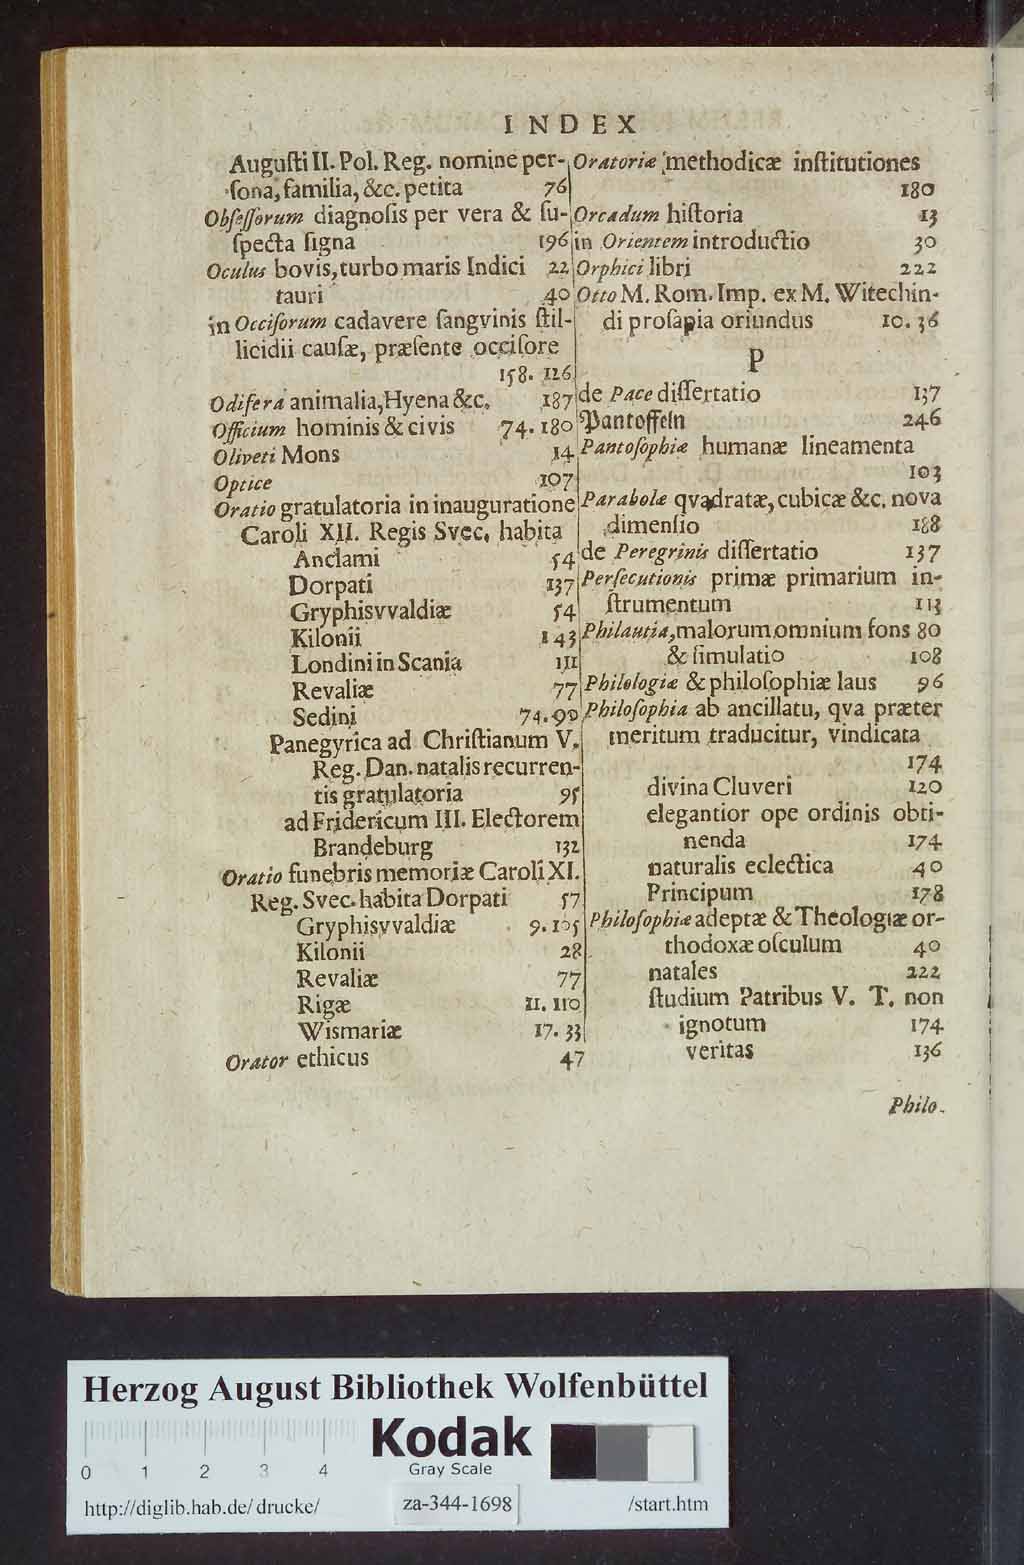 INDEX
Auguſti II. Pol. Reg. nomine per-
ſona, familia, &c. petita 76
Obſeſſorum diagnoſis per vera & ſu-
ſpecta ſigna 196
Oculus bovis, turbo maris Indici 22
tauri 40
in Occiſorum cadavere ſangvinis ſtil-
licidii cauſæ, præſente occiſore
158. 126
Odifera animalia, Hyena &c. 187
Officium hominis & civis 74. 180
Oliveti Mons 14
Optice 107
Oratio gratulatoria in inauguratione
Caroli XII. Regis Svec. habita
Anclami 54
Dorpati 137
Gryphisvvaldiæ 54
Kilonii 143
Londini in Scania 111
Revaliæ 77
Sedini 74. 90
Panegyrica ad Chriſtianum V.
Reg. Dan. natalis recurren-
tis gratulatoria 95
ad Fridericum III. Electorem
Brandeburg 132
Oratio funebris memoriæ Caroli XI.
Reg. Svec. habita Dorpati 57
Gryphisvvaldiæ 9. 105
Kilonii 28
Revaliæ 77
Rigæ 11. 110
Wismariæ 17. 33
Orator ethicus 47
Oratoriæ methodicæ inſtitutiones
180
Orcadum hiſtoria 13
in Orientem introductio 30
Orphici libri 222
Otto M. Rom. Imp. ex M. Witechin-
di proſapia oriundus 10. 36
P
de Pace diſſertatio 137
Pantoffeln 246
Pantoſophiæ humanæ lineamenta
103
Parabolæ qvadratæ, cubicæ &c. nova
dimenſio 188
de Peregrinis diſſertatio 137
Perſecutionis primæ primarium in-
ſtrumentum 113
Philautia, malorum omnium fons 80
& ſimulatio 108
Philologiæ & philoſophiæ laus 96
Philoſophia ab ancillatu, qva præter
meritum traducitur, vindicata
174
divina Cluveri 120
elegantior ope ordinis obti-
nenda 174
naturalis eclectica 40
Principum 178
Philoſophiæ adeptæ & Theologiæ or-
thodoxæ oſculum 40
natales 222
ſtudium Patribus V. T. non
ignotum 174
veritas 136
Philo-
Herzog August Bibliothek Wolfenbüttel
Kodak
0 1 2 3 4
Gray Scale
http://diglib.hab.de/drucke/ za-344-1698 /start.htm